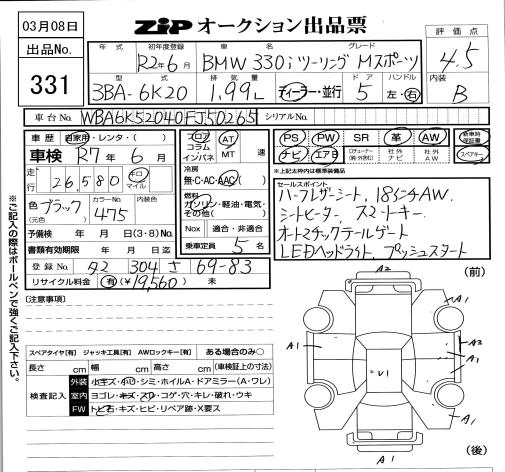 03月08日
ZiP オークション出品票
出品No.
331
年式 初年度登録 車名 グレード
R2年6月 BMW 330i ツーリング Mスポーツ
評価点
4.5
型式 排気量 ドア ハンドル
3BA-6K20 1.99L ディーラー・並行 5 左・右
内装
B
車台No. WBA6K52040FJ50265 シリアルNo.
車歴 自家用・レンタ・( )
車検 R7年6月
走行 26,580 キロ マイル
色 ブラック (元色) カラーNo. 475 内装色
予備検 年 月 日(3・8)No.
書類有効期限 年 月 日迄
登録No. 304 さ 69-83
リサイクル料金 有(¥19,560) 未
フロア コラム インパネ AT MT 速
冷房
無・C・AC・AAC( )
燃料
ガソリン・軽油・電気・その他( )
Nox 適合・非適合
乗車定員 5名
PS PW SR 革 AW 新車時保証書
ナビ エアB 社外ナビ 社外AW スペアキー
*上記以外枠内は標準装備品
セールスポイント
ハーフレザーシート, 18インチAW,
シートヒーター, スマートキー
オートマチックテールゲート
LEDヘッドライト, プッシュスタート
※ご記入の際はボールペンで強くご記入下さい。
[注意事項]
スペアタイヤ[有] ジャッキ工具[有] AWロックキー[有] ある場合のみ○
長さ cm 幅 cm 高さ cm (車検証上の寸法)
検査記入
外装 小キズ・AU・シミ・ホイルA・ドアミラー(A・ワレ)
室内 ヨゴレ・キズ・スレ・コゲ・穴・キレ・破れ・ウキ
FW トビ石・キズ・ヒビ・リペア跡・X要ス
(前)
A2
A1
A1
A1
A2
A1
U1
A1
A1
A1
(後)